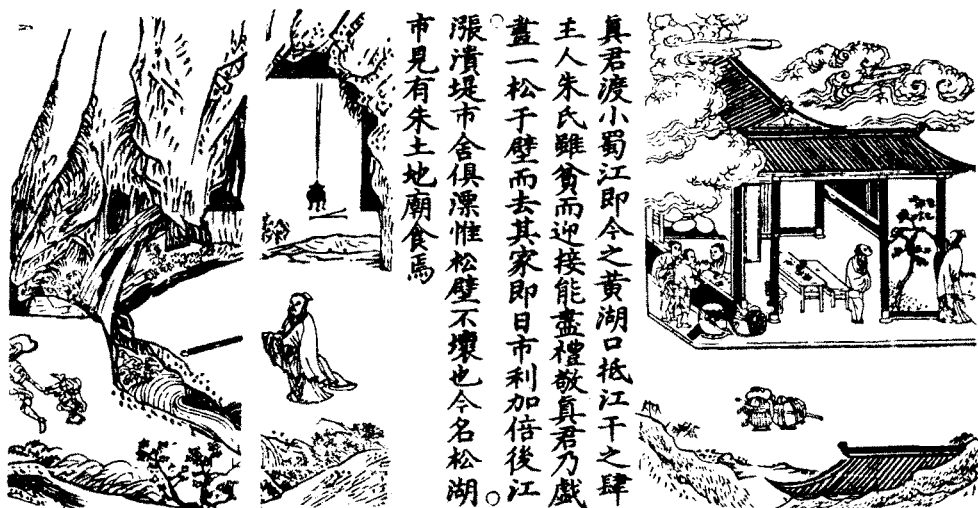 真君渡小蜀江即今之黄湖口抵江干之肆
主人朱氏雖貧而迎接能盡禮敬真君乃戲
畫一松于壁而去其家即日市利加倍後江
漲潰堤市舍俱漂惟松壁不壞也今名松湖
市見有朱土地廟食焉